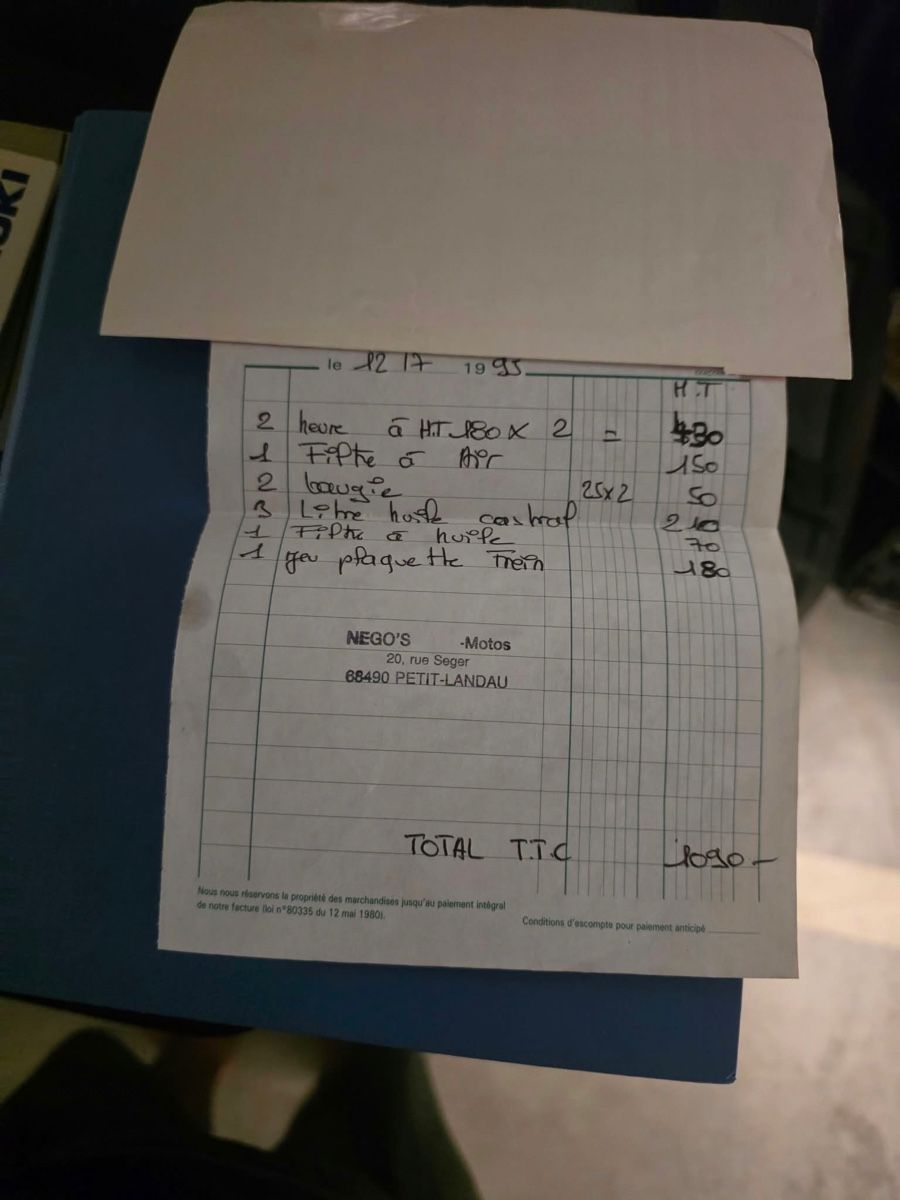 le 12 17 1995
H.T
2 heure à H.T 180 x 2 = 430
1 Filtre à Air 150
2 bougie 25x2 50
3 Litre huile castrol 210
1 Filtre à huile 70
1 jeu plaquette Frein 180
NEGO'S -Motos
20, rue Seger
68490 PETIT-LANDAU
TOTAL T.T.C 1090-
Nous nous réservons la propriété des marchandises jusqu'au paiement intégral
de notre facture (loi n°80335 du 12 mai 1980).
Conditions d'escompte pour paiement anticipé